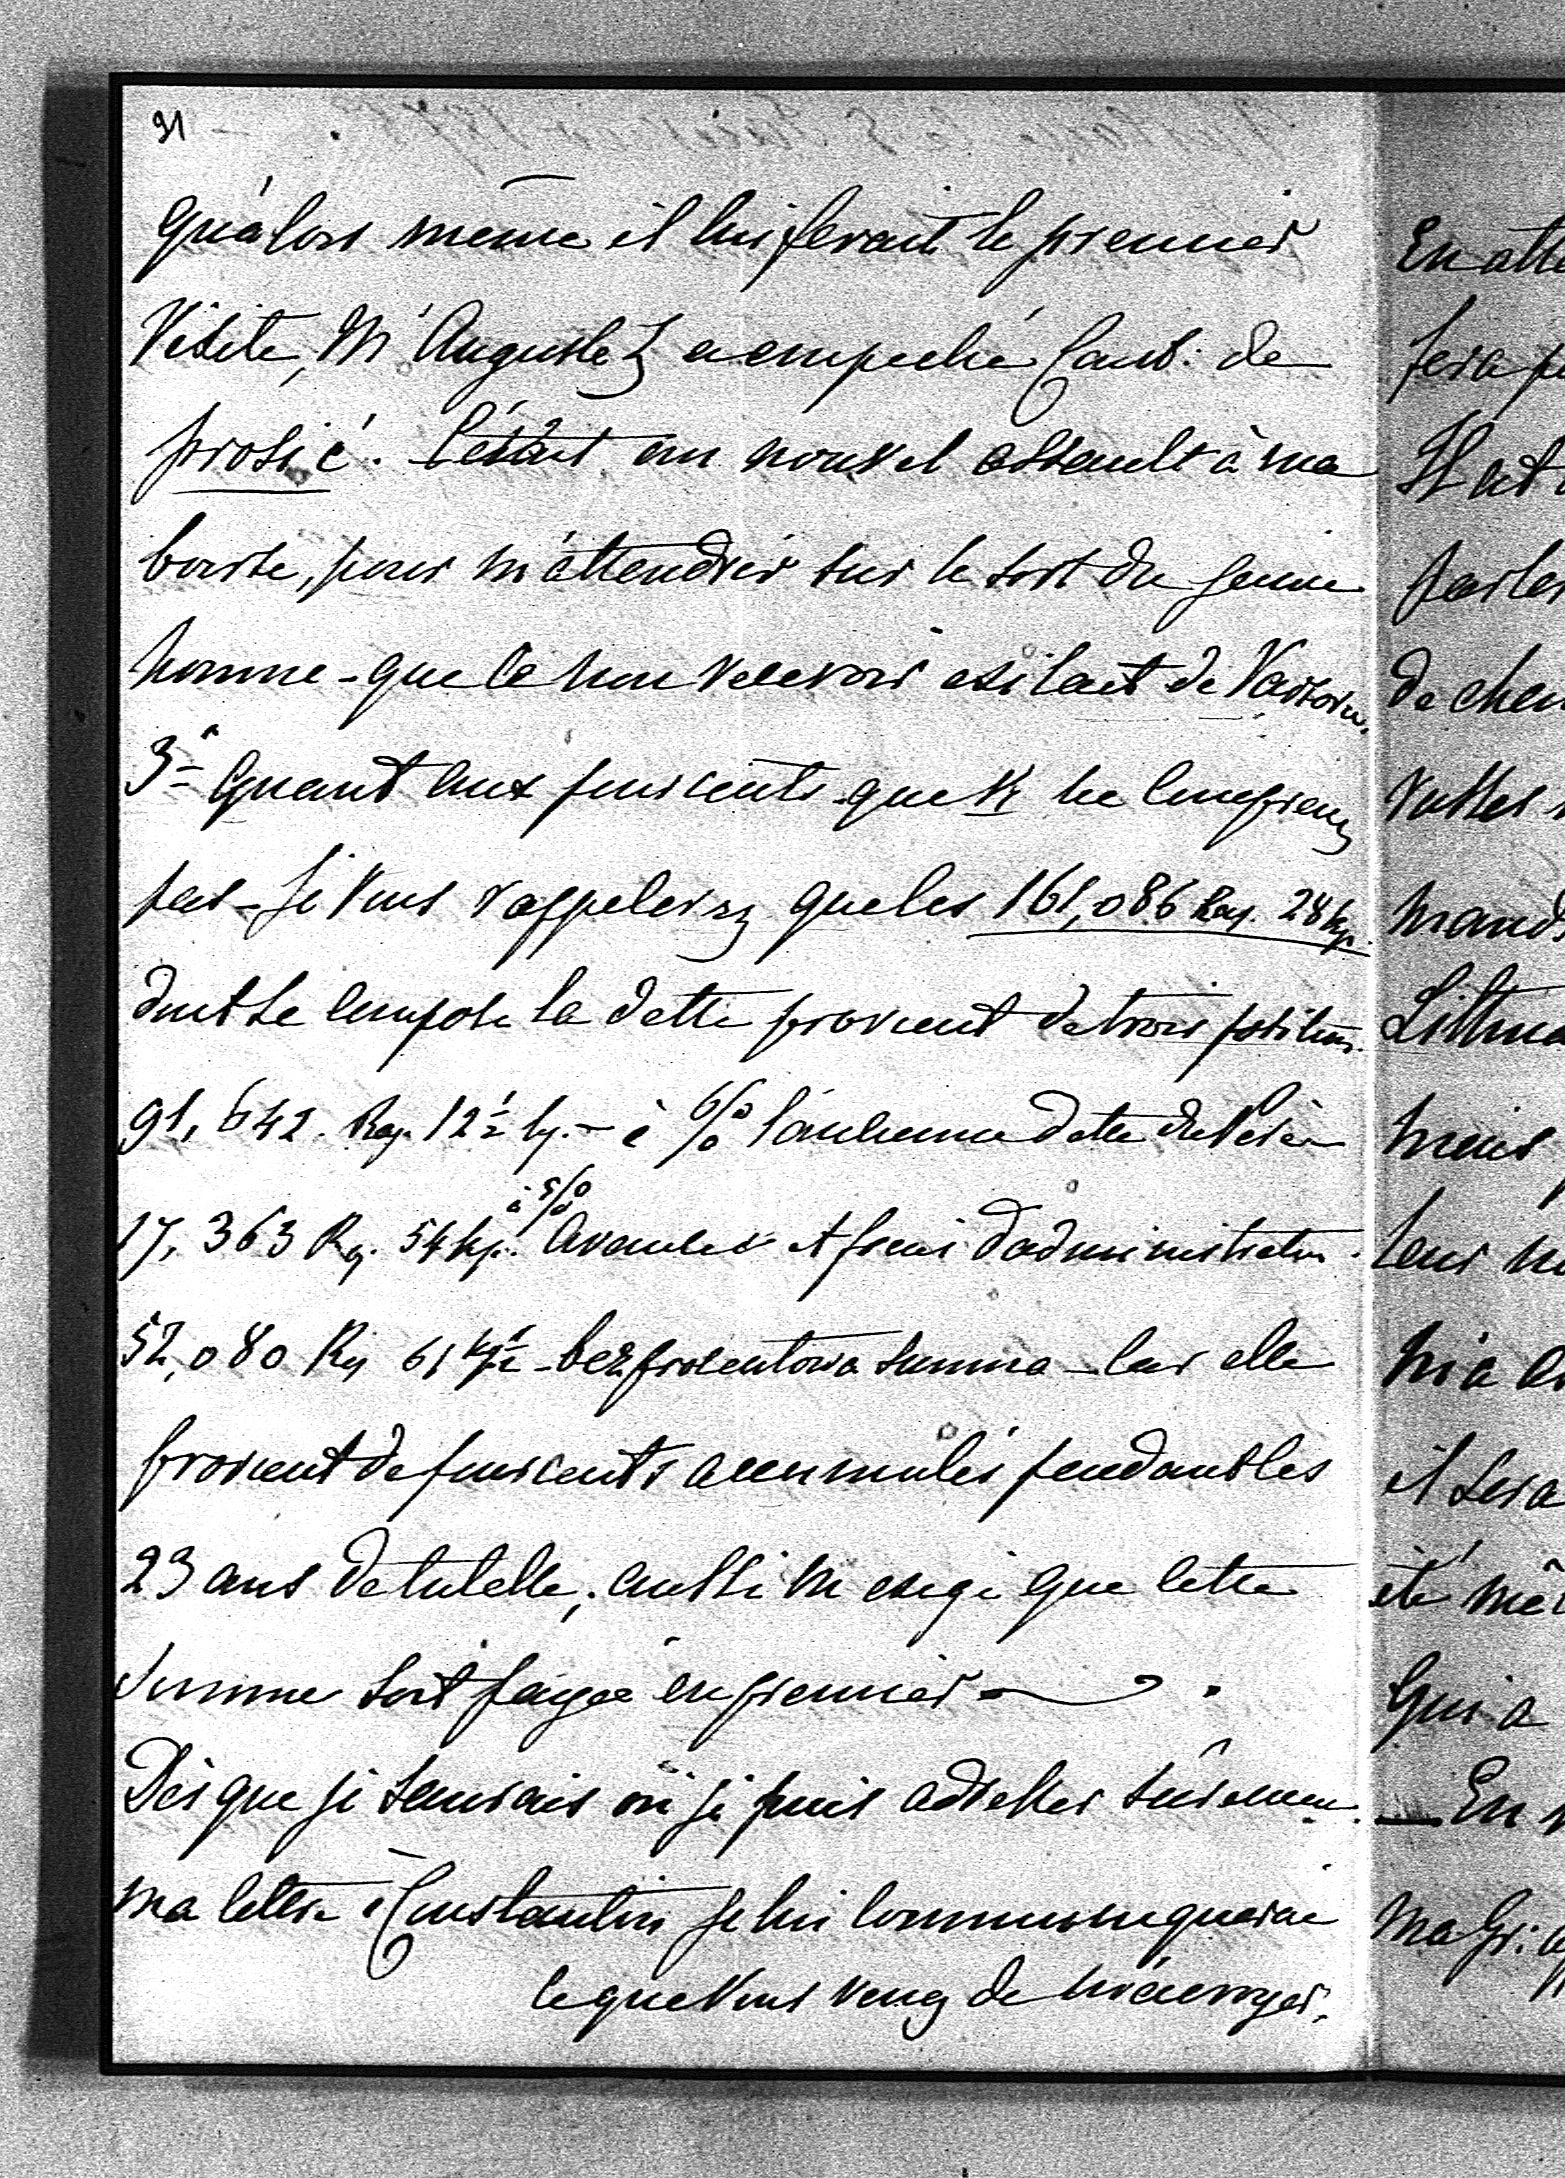 91
qu'alors même il lui ferait le premier
Visite, Mr Auguste Z a empeché Const: de
prosić. C'était un nouvel assault à ma
bourse, pour m'attendrir sur le sort du jeune
homme - que ce non recevoir exilait de Varsovie.
3º Quant aux pourcents - que K ne comprenz
pas - je vous rappelerez que les 161,086 Rsy. 28 kp.
dont se compose la dette provient de trois positions.
91,642. Rsy. 12½ kp. - à 6% l'ancienne dette du Père
17,363 Rsy. 54 kp. à 5% Avances et frais d'administration.
52,080 Rsy 61 kp ½ - bezprocentowa summa - car elle
provient de pourcents accumulés pendant les
23 ans de tutelle, aussi m exige que cette
Somme soit payée en premier
Dès que je saurais où je puis adresser surement.
ma lettre à Constantin je lui communiquerai
ce que Vous venez de m'envoyer.
En atte
fera
Il est
parler
de
mands
mais
leur
ni a
il sera
été
Qui a
— En
Ma